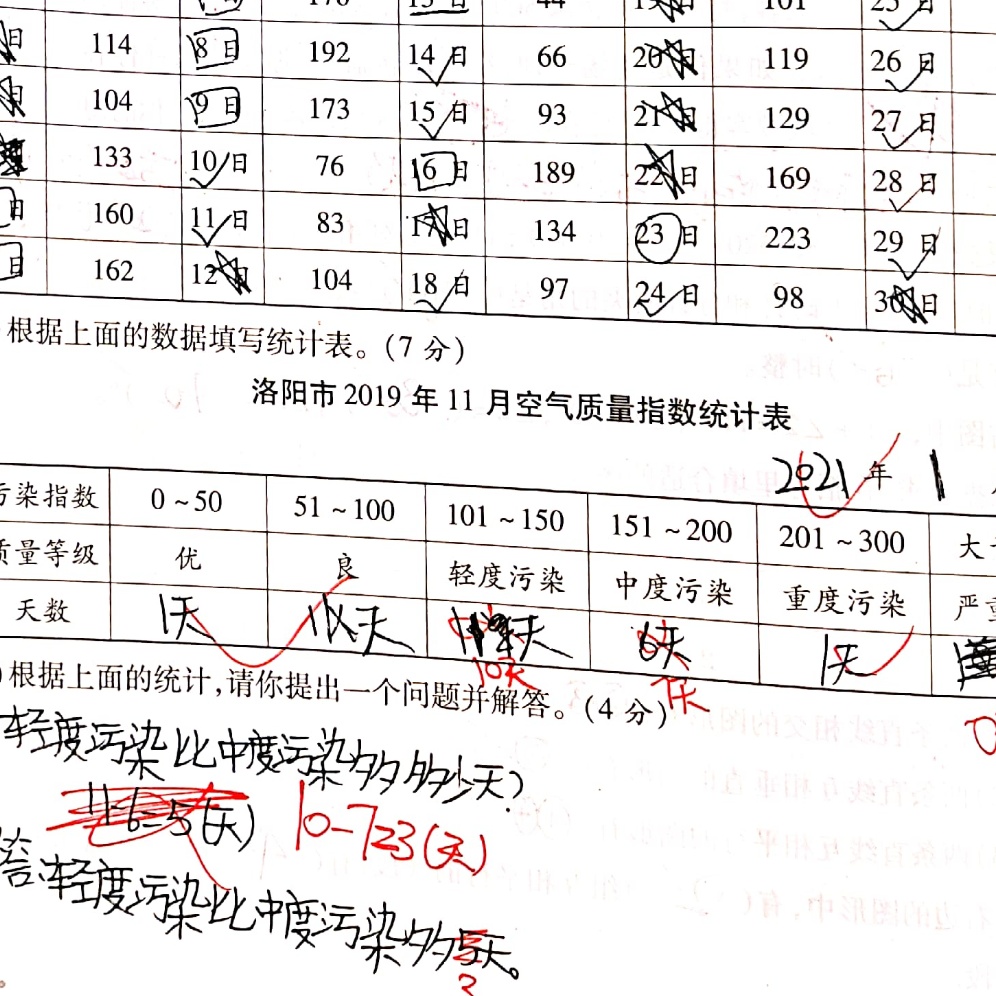 170 13日 44 19日 101 25日
日 114 8日 192 14日 66 20日 119 26日
日 104 9日 173 15日 93 21日 129 27日
133 10日 76 16日 189 22日 169 28日
日 160 11日 83 17日 134 23日 223 29日
日 162 12日 104 18日 97 24日 98 30日
根据上面的数据填写统计表。(7 分)
洛阳市 2019 年 11 月空气质量指数统计表
2021年 1
污染指数 0~50 51~100 101~150 151~200 201~300 大
质量等级 优 良 轻度污染 中度污染 重度污染 严重
天数 1天 11天 天 6天 1天
10天 7天 0
)根据上面的统计,请你提出一个问题并解答。(4 分)
轻度污染比中度污染多多少天?
11-6=5(天) 10-7=3(天)
答:轻度污染比中度污染多5天。
3